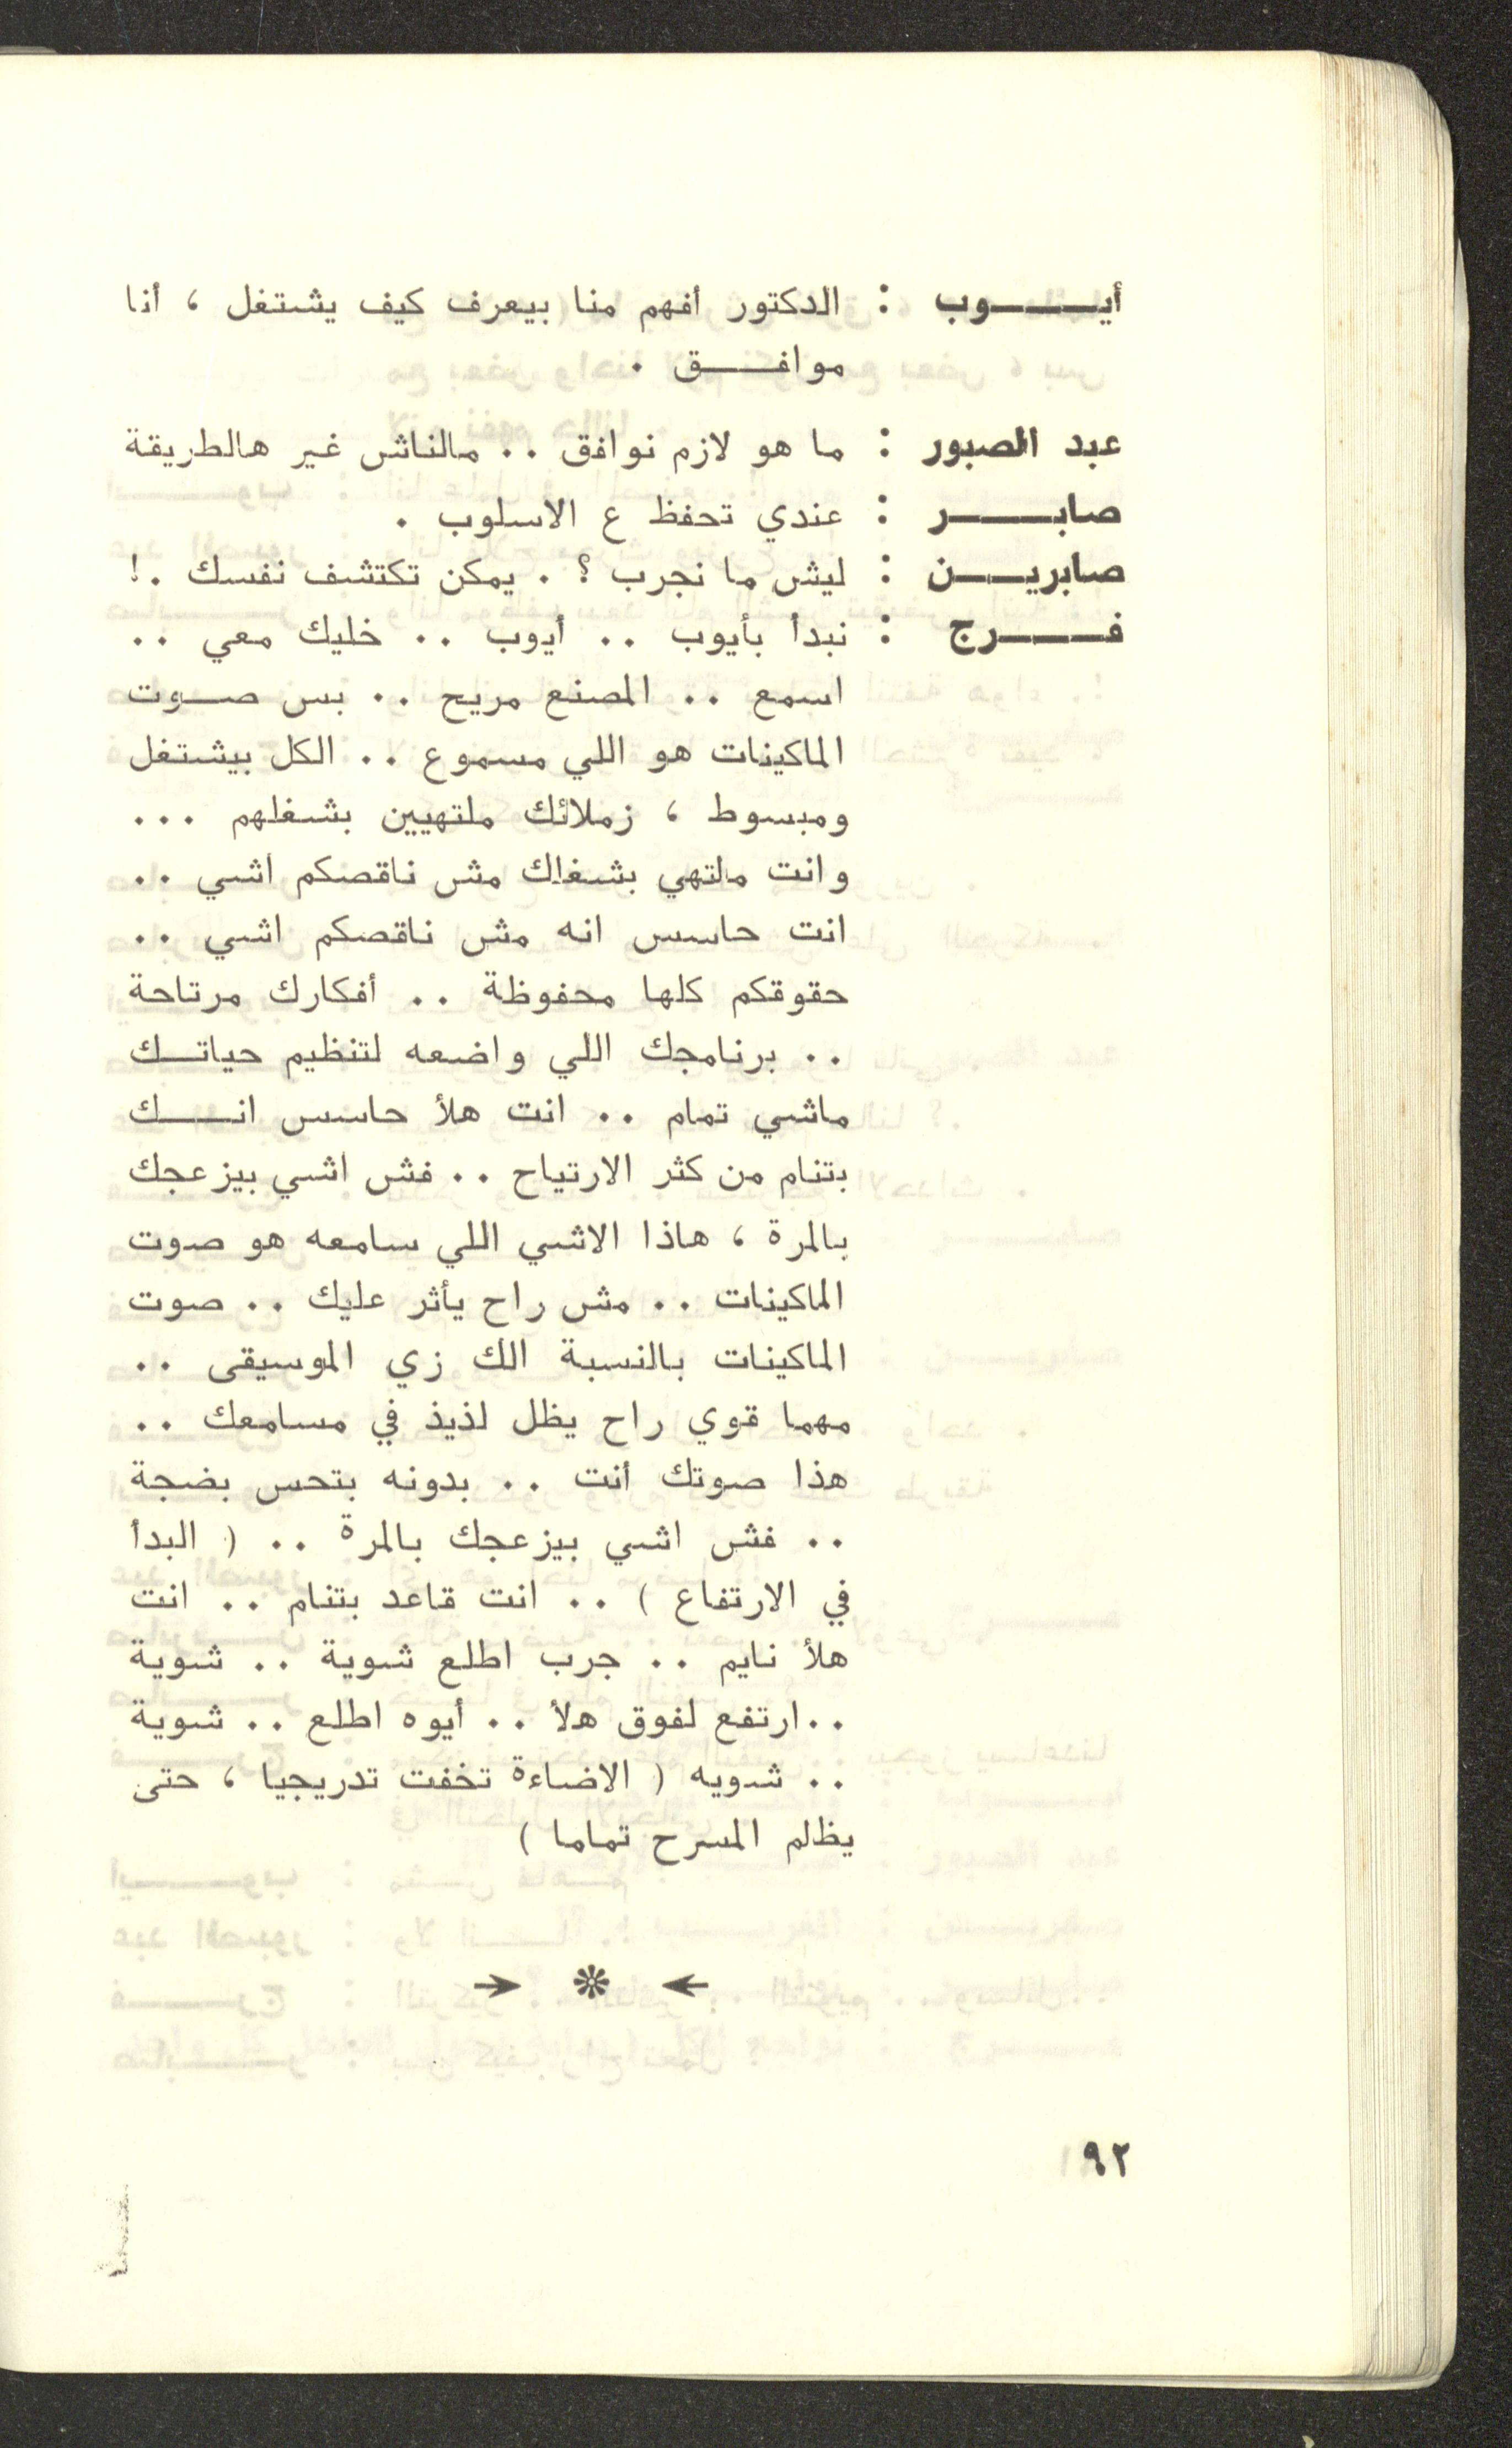 أيـــــوب : الدكتور أفهم منا بيعرف كيف يشتغل ، أنا
موافـــق .
عبد الصبور : ما هو لازم نوافق .. مالناش غير هالطريقة
صابـــــر : عندي تحفظ ع الاسلوب .
صابريـــن : ليش ما نجرب ؟ . يمكن تكتشف نفسك .!
فـــــرج : نبدأ بأيوب .. أيوب .. خليك معي ..
اسمع .. المصنع مريح .. بس صـوت
الماكينات هو اللي مسموع .. الكل بيشتغل
ومبسوط ، زملائك ملتهيين بشغلهم ...
وانت ملتهي بشغلك مش ناقصكم اشي ..
انت حاسس انه مش ناقصكم اشي ..
حقوقكم كلها محفوظة .. أفكارك مرتاحة
.. برنامجك اللي واضعه لتنظيم حياتـك
ماشي تمام .. انت هلأ حاسس انـــك
بتنام من كثر الارتياح .. فش اشي بيزعجك
بالمرة ، هاذا الاشي اللي سامعه هو صوت
الماكينات .. مش راح يأثر عليك .. صوت
الماكينات بالنسبة الك زي الموسيقى ..
مهما قوي راح يظل لذيذ في مسامعك ..
هذا صوتك أنت .. بدونه بتحس بضجة
.. فش اشي بيزعجك بالمرة .. ( البدأ
في الارتفاع ) .. انت قاعد بتنام .. انت
هلأ نايم .. جرب اطلع شوية .. شوية
..ارتفع لفوق هلأ .. أيوه اطلع .. شوية
.. شويه ( الاضاءة تخفت تدريجيا ، حتى
يظلم المسرح تماما )
٩٢